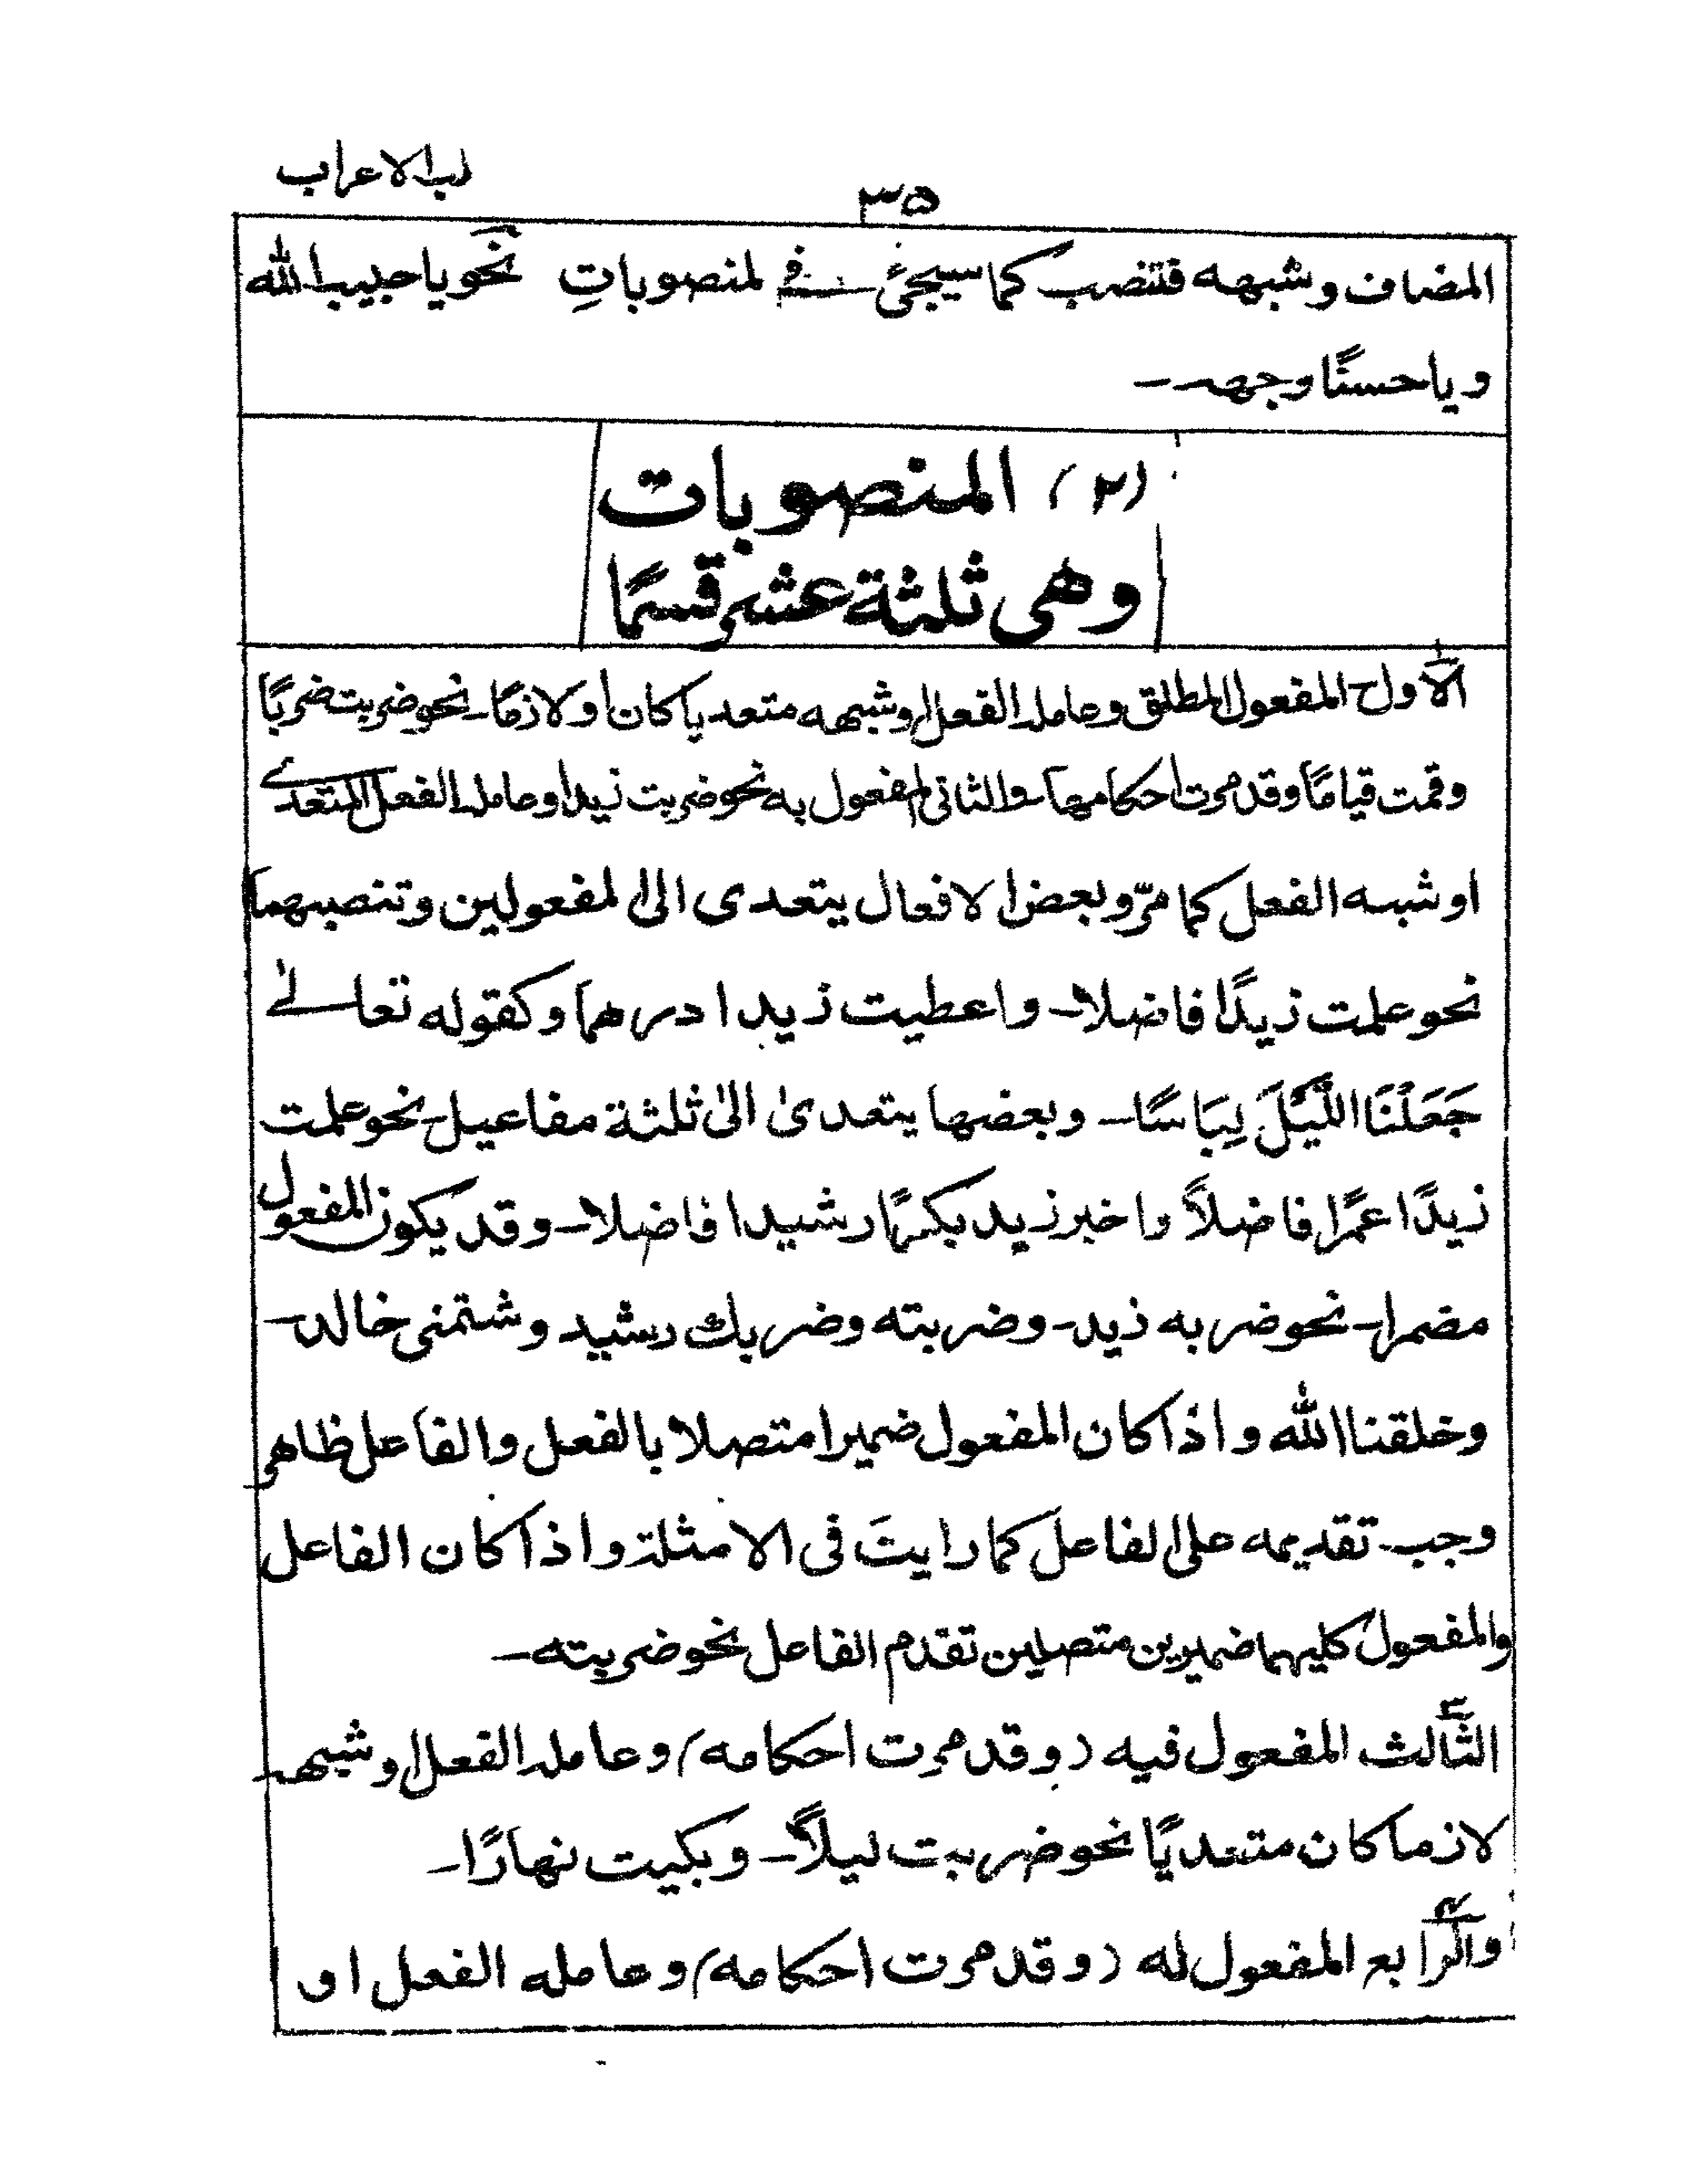 لب الاعراب
۳۵
المضاف وشبهه فتنصب كما سيجئ في لمنصوباتِ نحو يا حبيب الله
ويا حسنًا وجهه ـ
(۲) المنصوبات
وهي ثلثة عشر قسمًا
الاول المفعول المطلق وعامله الفعل او شبهه متعديا كان او لازمًا ـ نحو ضربت ضربًا
وقمت قيامًا وقد مرت احكامها ـ والثاني المفعول به نحو ضربت زيدا وعامله الفعل المتعدي
او شبه الفعل كما مرّ وبعض الافعال يتعدى الى المفعولين وتنصبهما
نحو علمت زيدًا فاضلا ـ واعطيت زيدا درهما وكقوله تعالے
جَعَلْنَا اللَّيْلَ لِبَاسًا ـ وبعضها يتعدىٰ الىٰ ثلثة مفاعيل ـ نحو علمت
زيدًا عمرًا فاضلاً واخبر زيد بكرًا رشيدا فاضلا ـ وقد يكون المفعول
مضمرا ـ نحو ضربه زيد ـ وضربته وضربك رشيد وشتمني خالد ـ
وخلقنا الله واذا كان المفعول ضميرا متصلا بالفعل والفاعل ظاهر
وجب تقديمه على الفاعل كما رايتَ في الامثلة واذا كان الفاعل
والمفعول كليهما ضميرين متصلين تقدم الفاعل نحو ضربته ـ
الثالث المفعول فيه (وقد مرت احكامه) وعامله الفعل او شبهه
لازما كان متعديًا نحو ضربت ليلاً ـ وبكيت نهارًا ـ
والرابع المفعول له (وقد مرت احكامه) وعامله الفعل او